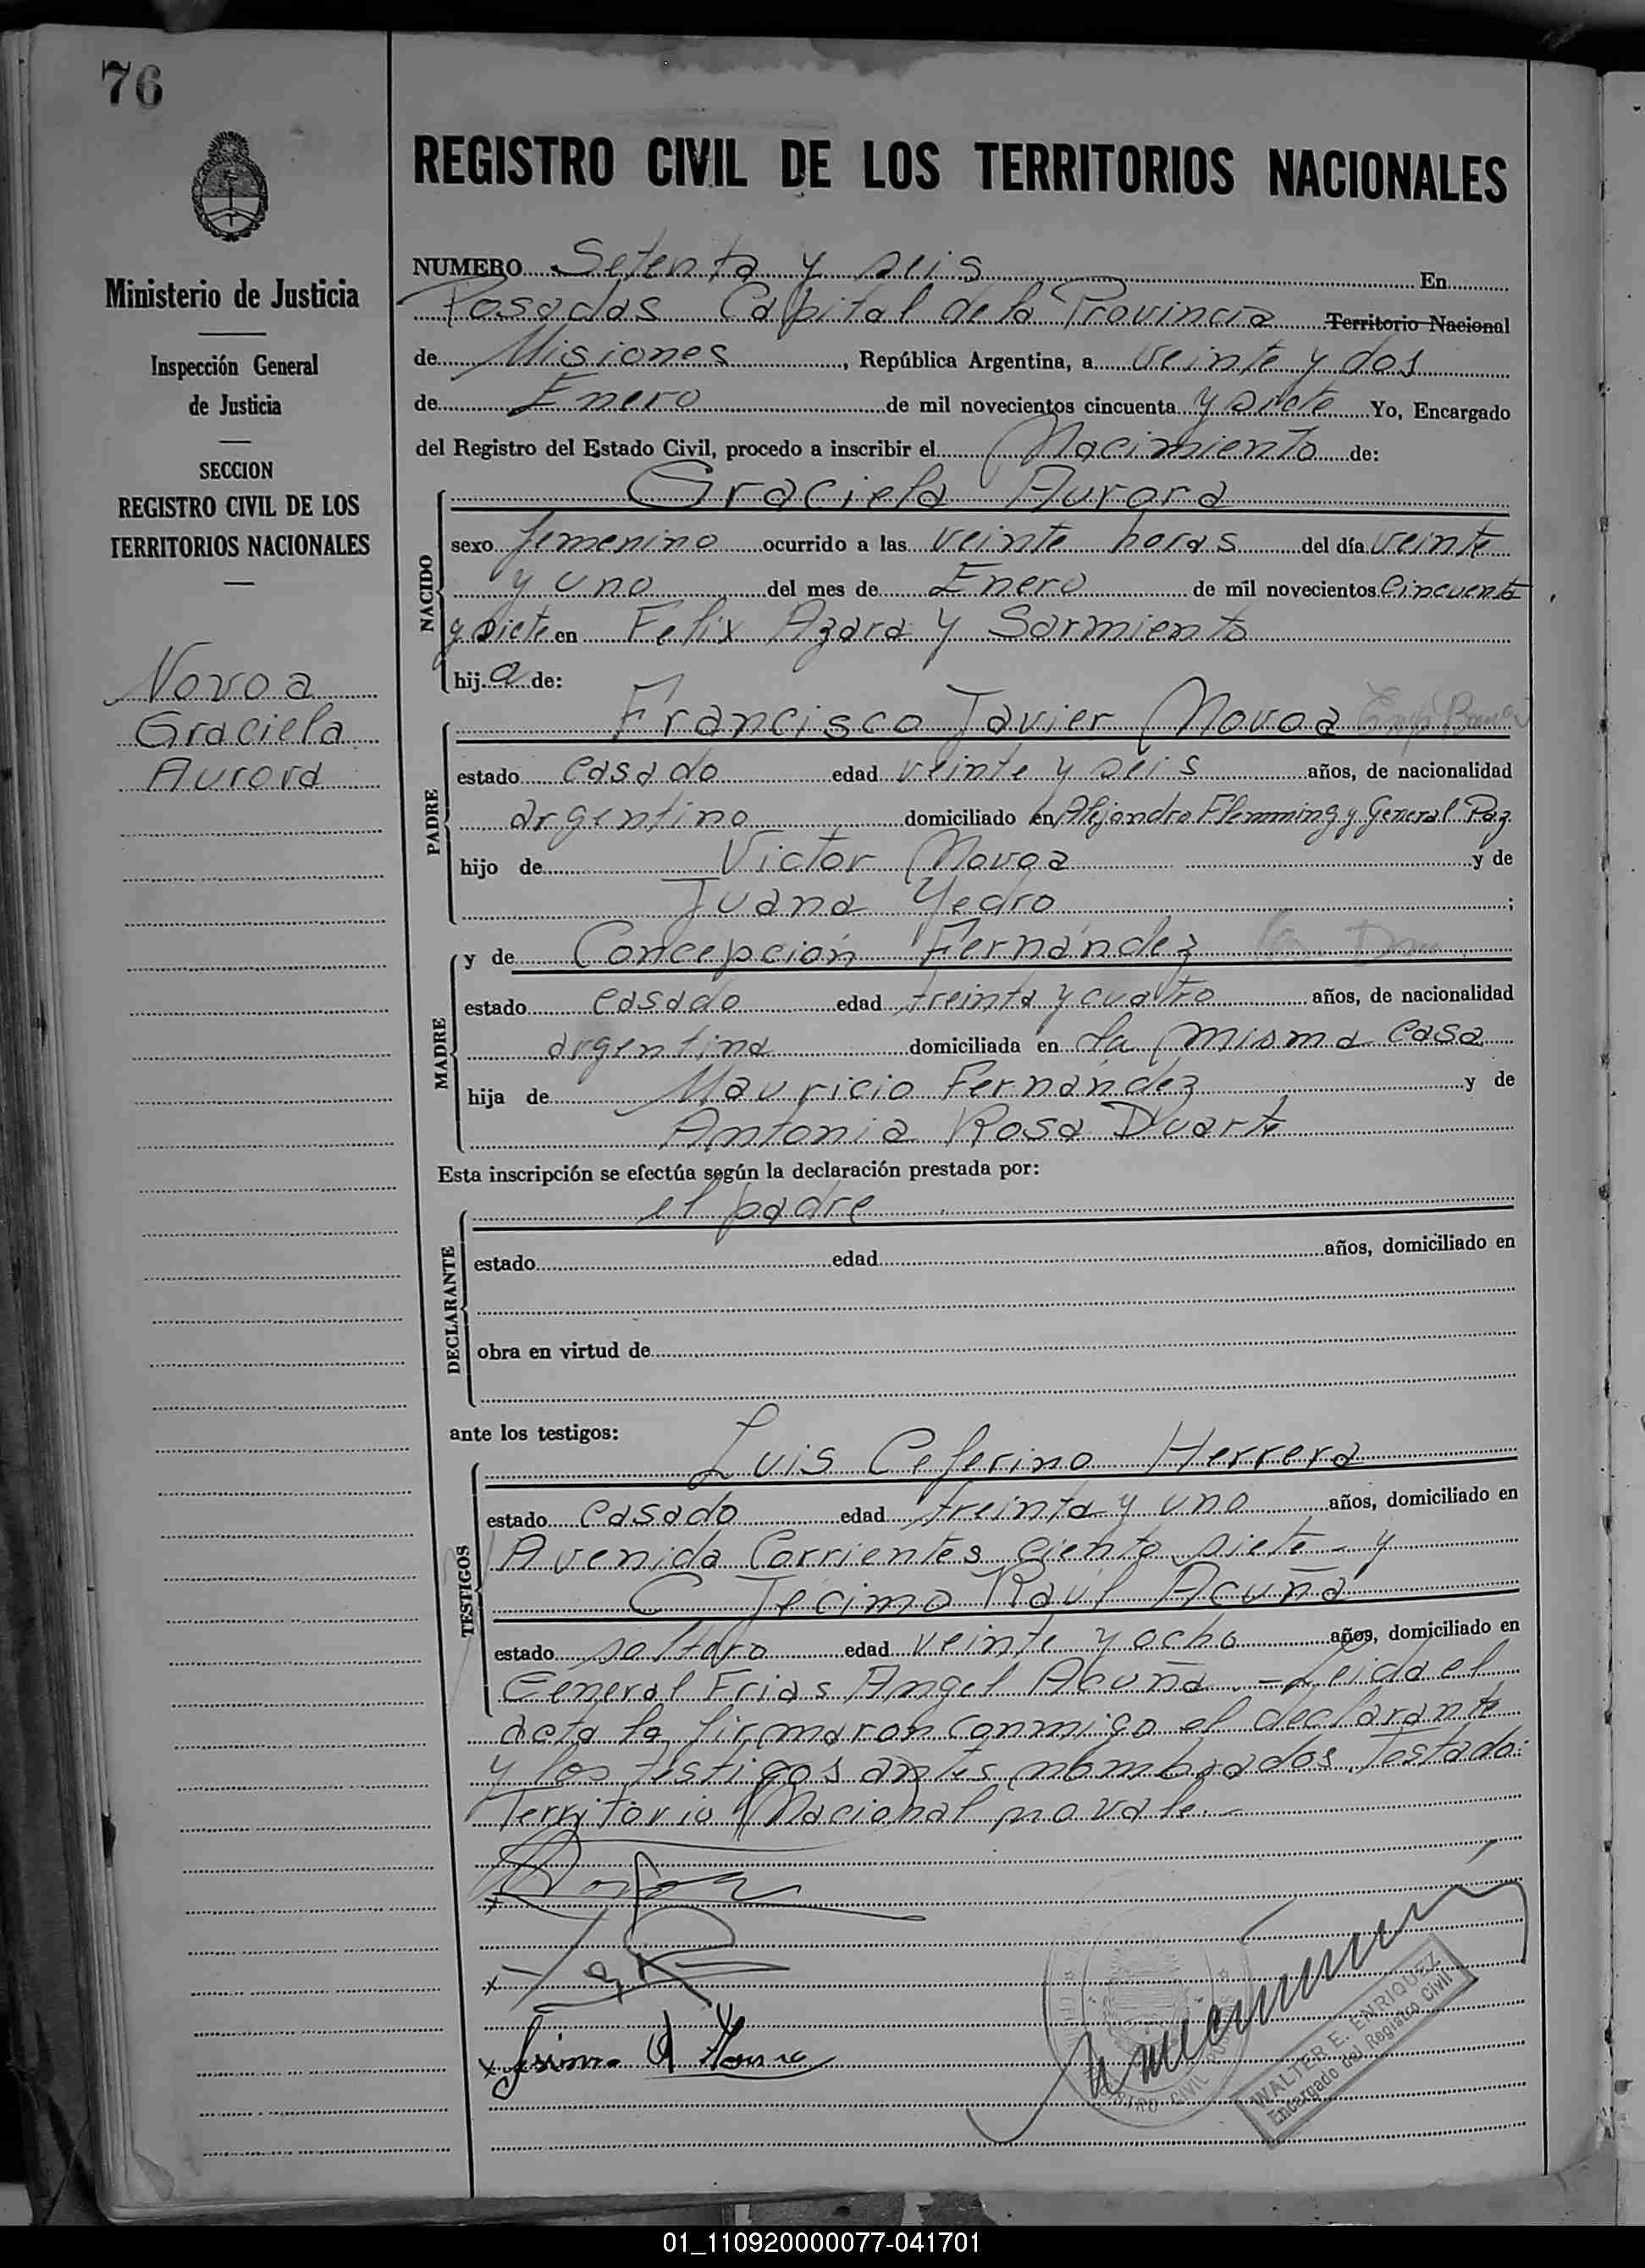 76
REGISTRO CIVIL DE LOS TERRITORIOS NACIONALES
Ministerio de Justicia
Inspección General
de Justicia
SECCION
REGISTRO CIVIL DE LOS
TERRITORIOS NACIONALES
Novoa
Graciela
Aurora
NUMERO Setenta y seis En
Posadas Capital de la Provincia Territorio Nacional
de Misiones, República Argentina, a veinte y dos
de Enero de mil novecientos cincuenta y siete Yo, Encargado
del Registro del Estado Civil, procedo a inscribir el Nacimiento de:
Graciela Aurora
NACIDO
sexo femenino ocurrido a las veinte horas del día veinte
y uno del mes de Enero de mil novecientos cincuenta
y siete en Felix Azara y Sarmiento
hij a de:
Francisco Javier Novoa
PADRE
estado casado edad veinte y seis años, de nacionalidad
argentino domiciliado en Alejandro Flemming y General Paz
hijo de Victor Novoa y de
Juana Yedro;
y de Concepción Fernández
MADRE
estado casado edad treinta y cuatro años, de nacionalidad
argentina domiciliada en la misma casa
hija de Mauricio Fernández y de
Antonia Rosa Duarte
Esta inscripción se efectúa según la declaración prestada por:
el padre
DECLARANTE
estado edad años, domiciliado en
obra en virtud de
ante los testigos:
Luis Ceferino Herrera
TESTIGOS
estado casado edad treinta y uno años, domiciliado en
Avenida Corrientes ciento siete - y
Raúl Acuña
estado soltero edad veinte y ocho años, domiciliado en
General Frias Angel Acuña. - Leida el
acta la firmaron conmigo el declarante
y los testigos antes nombrados. Testado:
Territorio Nacional no vale. -
WALTER E. ENRIQUEZ
Encargado del Registro Civil
01_110920000077-041701